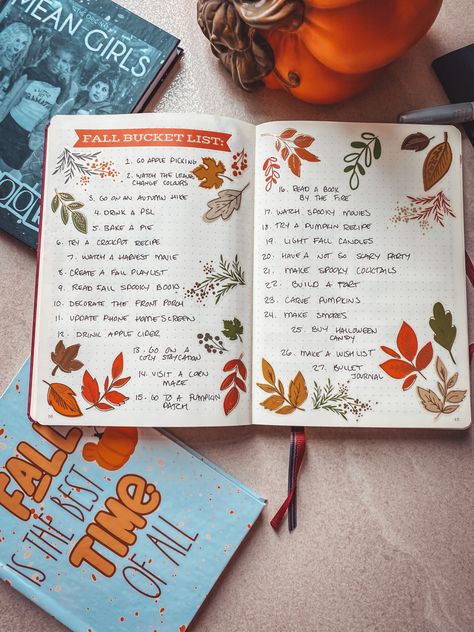 MEAN GIRLS
FALL BUCKET LIST:
1. GO APPLE PICKING
2. WATCH THE LEAVES
CHANGE COLOURS
3. GO ON AN AUTUMN HIKE
4. DRINK A PSL
5. BAKE A PIE
6. TRY A CROCKPOT RECIPE
7. WATCH A HARVEST MOVIE
8. CREATE A FALL PLAYLIST
9. READ FALL SPOOKY BOOKS
10. DECORATE THE FRONT PORCH
11. UPDATE PHONE HOMESCREEN
12. DRINK APPLE CIDER
13. GO ON A
COZY STAYCATION
14. VISIT A CORN
MAZE
15. GO TO A PUMPKIN
PATCH
16. READ A BOOK
BY THE FIRE
17. WATCH SPOOKY MOVIES
18. TRY A PUMPKIN RECIPE
19. LIGHT FALL CANDLES
20. HAVE A NOT SO SCARY PARTY
21. MAKE SPOOKY COCKTAILS
22. BUILD A FORT
23. CARVE PUMPKINS
24. MAKE SMORES
25. BUY HALLOWEEN
CANDY
26. MAKE A WISH LIST
27. BULLET
JOURNAL
FALL
IS THE BEST
TIME
OF ALL